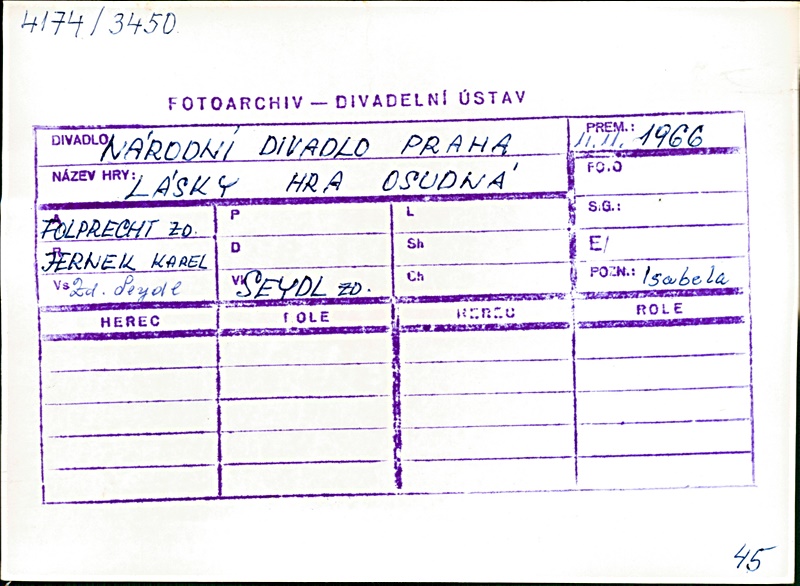 4174/3450
FOTOARCHIV — DIVADELNÍ ÚSTAV
DIVADLO NÁRODNÍ DIVADLO PRAHA
PREM.: 11.11. 1966
NÁZEV HRY: LÁSKY HRA OSUDNÁ
FOTO
A FOLPRECHT ZD.
P
L
S.G.:
R JERNEK KAREL
D
Sh
E/
Vs Zd. Seydl
Vk SEYDL ZD.
Ch
POZN.: Isabela
HEREC ROLE HEREC ROLE
45